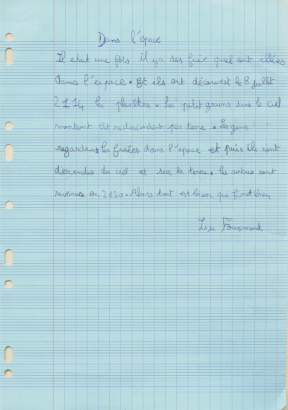 Dans l'espace
Il était une fois il y a des fusé quel sont allées
dans l'espace. Et ils ont découvert le 8 juillet
2124 les planètes. Les petit grains dans le ciel
montent et redescendent par terre. Les gens
regardens les fusées dans l'espace et puis ils sont
descendus du ciel et sur la terre. les autres sont
revenus en 2120. Alors tout est bien qui finit bien
Lise